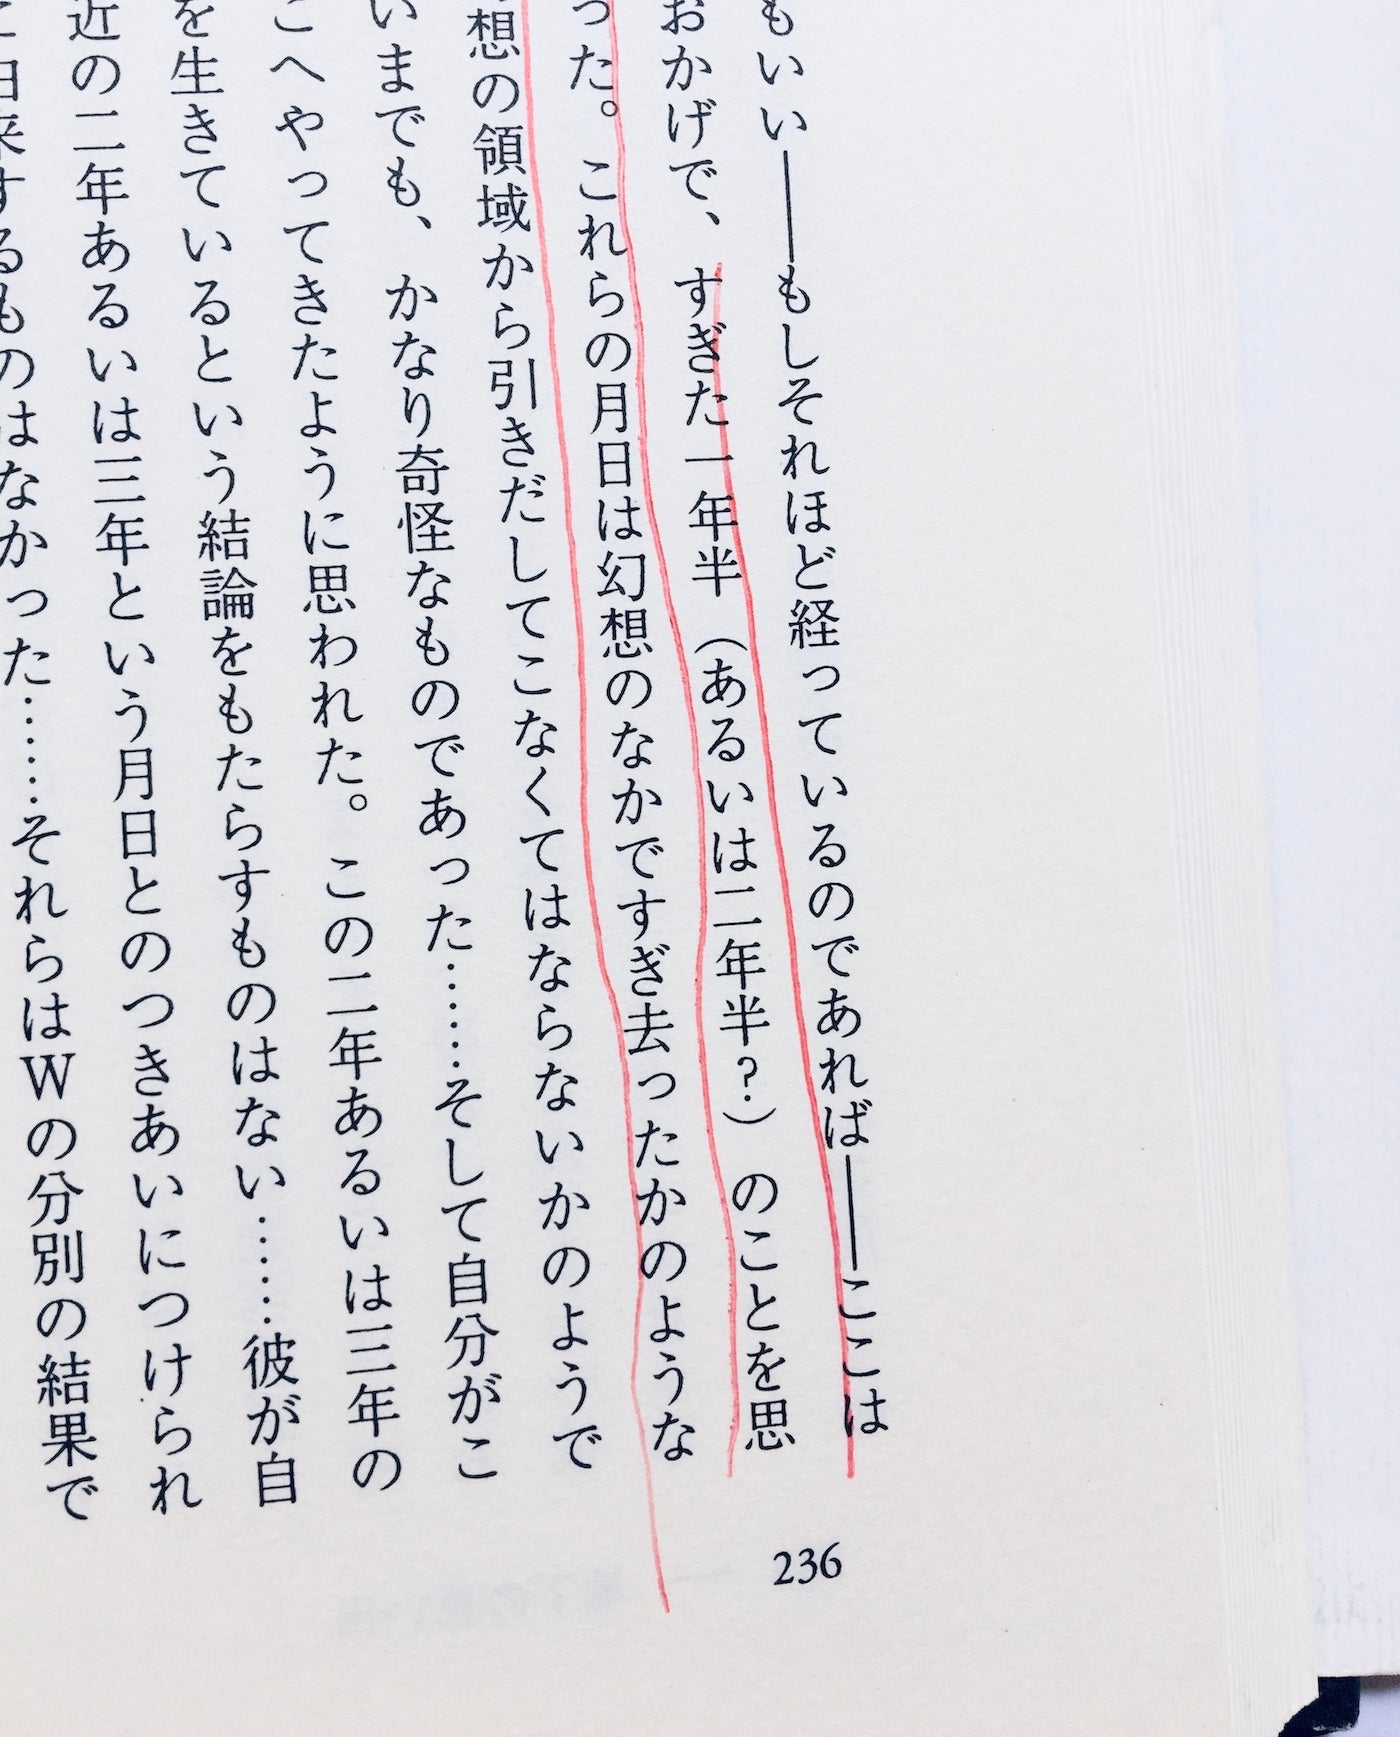 もいい――もしそれほど経っているのであれば――ここは
おかげで、すぎた一年半（あるいは二年半？）のことを思
った。これらの月日は幻想のなかですぎ去ったかのような
想の領域から引きだしてこなくてはならないかのようで
いまでも、かなり奇怪なものであった……そして自分がこ
こへやってきたように思われた。この二年あるいは三年の
を生きているという結論をもたらすものはない……彼が自
近の二年あるいは三年という月日とのつきあいにつけられ
来するものはなかった……それらはWの分別の結果で
236